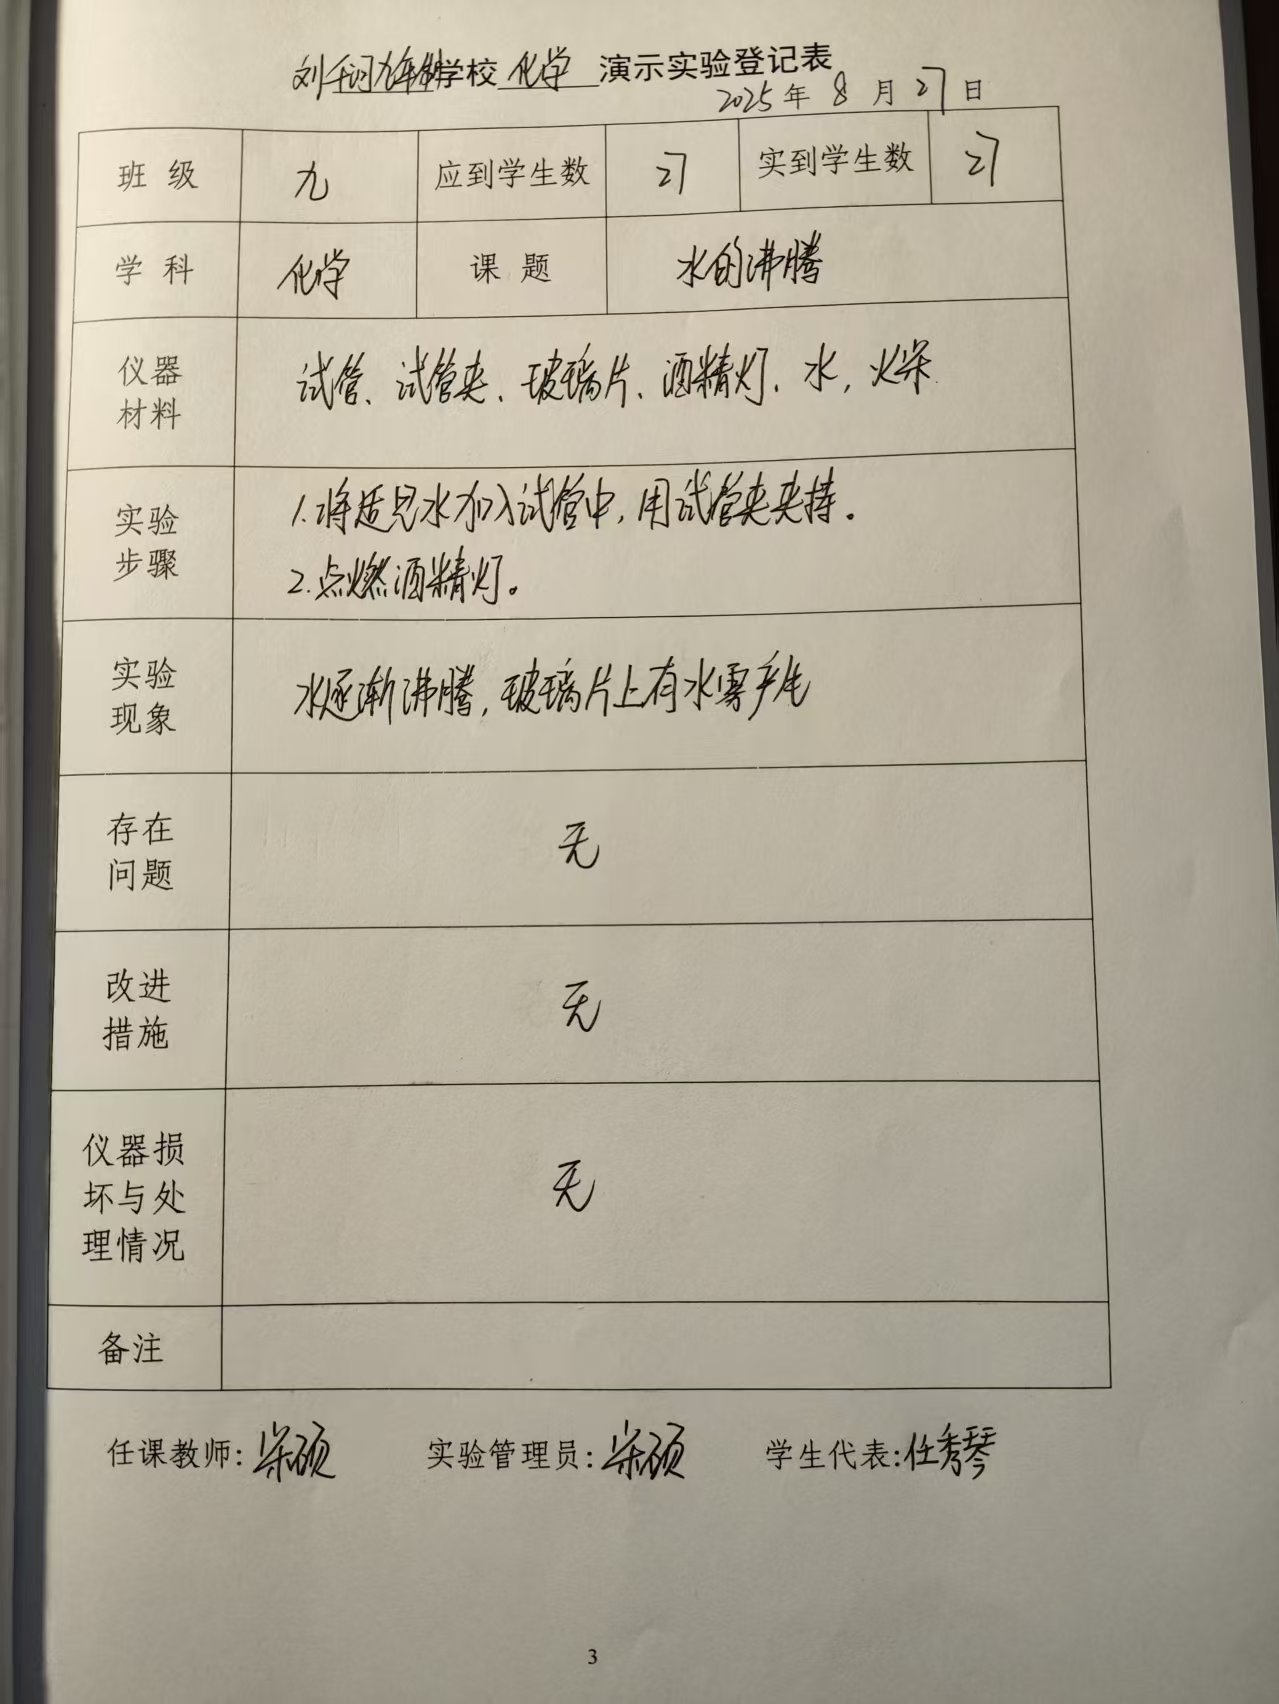 刘千河九年制学校 化学 演示实验登记表
2025年 8 月 27 日
班 级 九 应到学生数 27 实到学生数 27
学 科 化学 课 题 水的沸腾
仪器材料 试管、试管夹、玻璃片、酒精灯、水,火柴
实验步骤 1.将适量水加入试管中,用试管夹夹持。
2.点燃酒精灯。
实验现象 水逐渐沸腾,玻璃片上有水雾产生
存在问题 无
改进措施 无
仪器损坏与处理情况 无
备注
任课教师:宋硕 实验管理员:宋硕 学生代表:任秀琴
3